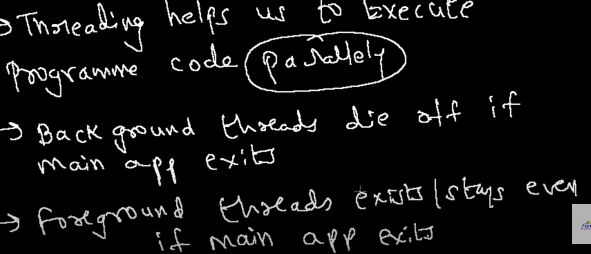 → Threading helps us to Execute
programme code parallely
→ Back ground threads die off if
main app exits
→ foreground threads exists/stays even
if main app exits